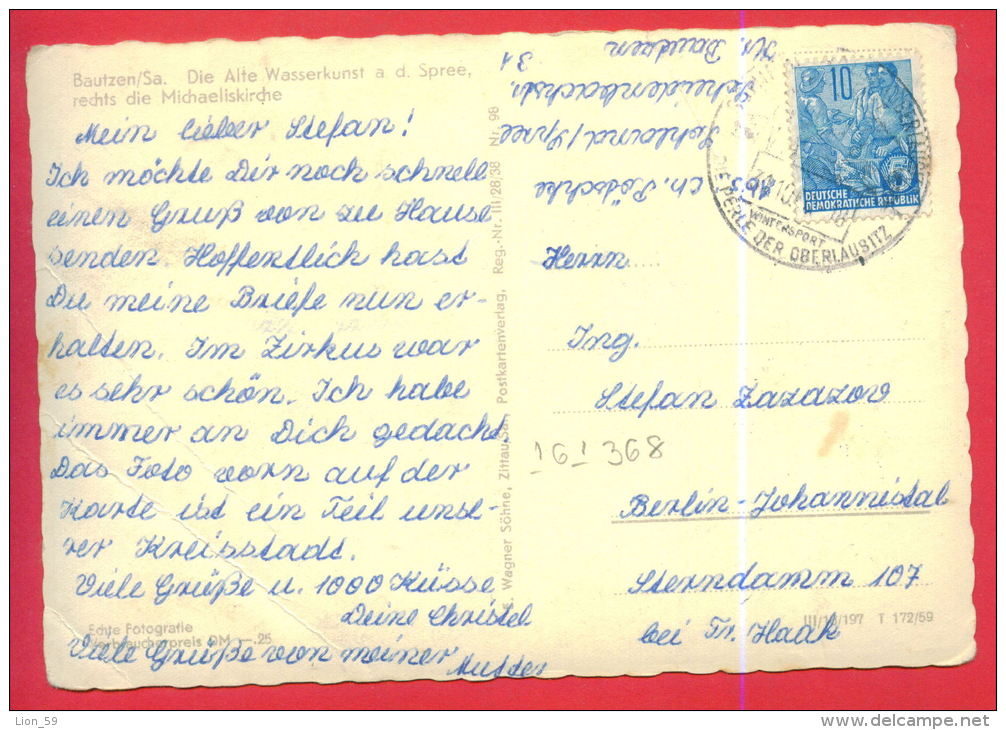 Bautzen/Sa. Die Alte Wasserkunst a. d. Spree,
rechts die Michaeliskirche
Mein lieber Stefan!
Ich möchte Dir noch schnell
einen Gruß von zu Hause
senden. Hoffentlich hast
Du meine Briefe nun er-
halten. Im Zirkus war
es sehr schön. Ich habe
immer an Dich gedacht.
Das Foto vorn auf der
Karte ist ein Teil unse-
rer Kreisstadt.
Viele Grüße u. 1000 Küsse
Deine Christel
Viele Grüße von meiner
Mutter
Echte Fotografie
Verbraucherpreis DM —.25
Wagner Söhne, Zittau/Sa., Postkartenverlag, Reg.-Nr. III/28/38 Nr. 98
Ch. Pötschke
Schland/Spree
31
Kr. Bautzen
10
DEUTSCHE
DEMOKRATISCHE REPUBLIK
WINTERSPORT
DIE PERLE DER OBERLAUSITZ
Herrn
Ing.
Stefan Zazazov
161368
Berlin-Johannistal
Sterndamm 107
bei Fr. Haak
III/18/197 T 172/59
Lion_59
www.delcampe.net